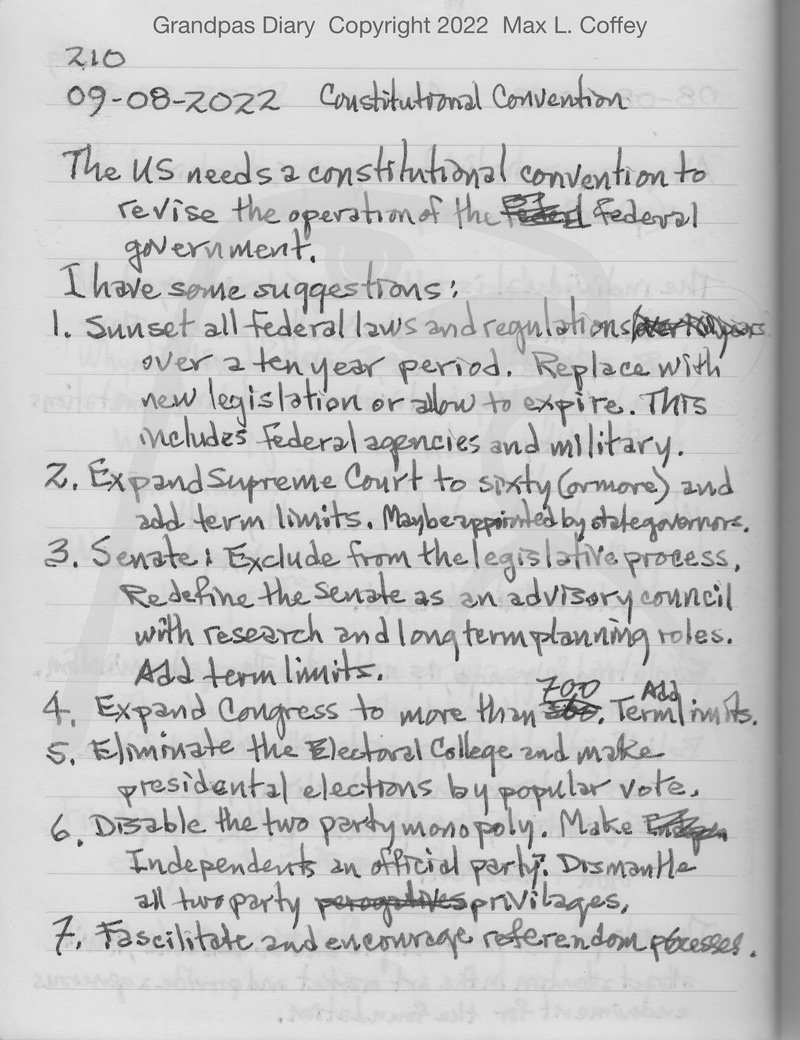 Grandpas Diary Copyright 2022 Max L. Coffey
210
09-08-2022 Constitutional Convention
The US needs a constitutional convention to
revise the operation of the federal
government.
I have some suggestions:
1. Sunset all federal laws and regulations
over a ten year period. Replace with
new legislation or allow to expire. This
includes federal agencies and military.
2. Expand Supreme Court to sixty (or more) and
add term limits. Maybe appointed by state governors.
3. Senate: Exclude from the legislative process.
Redefine the Senate as an advisory council
with research and long term planning roles.
Add term limits.
700 Add
4. Expand Congress to more than . Term limits.
5. Eliminate the Electoral College and make
presidental elections by popular vote.
6. Disable the two party monopoly. Make
Independents an official party?. Dismantle
all two party privilages.
7. Fascilitate and encourage referendom processes.